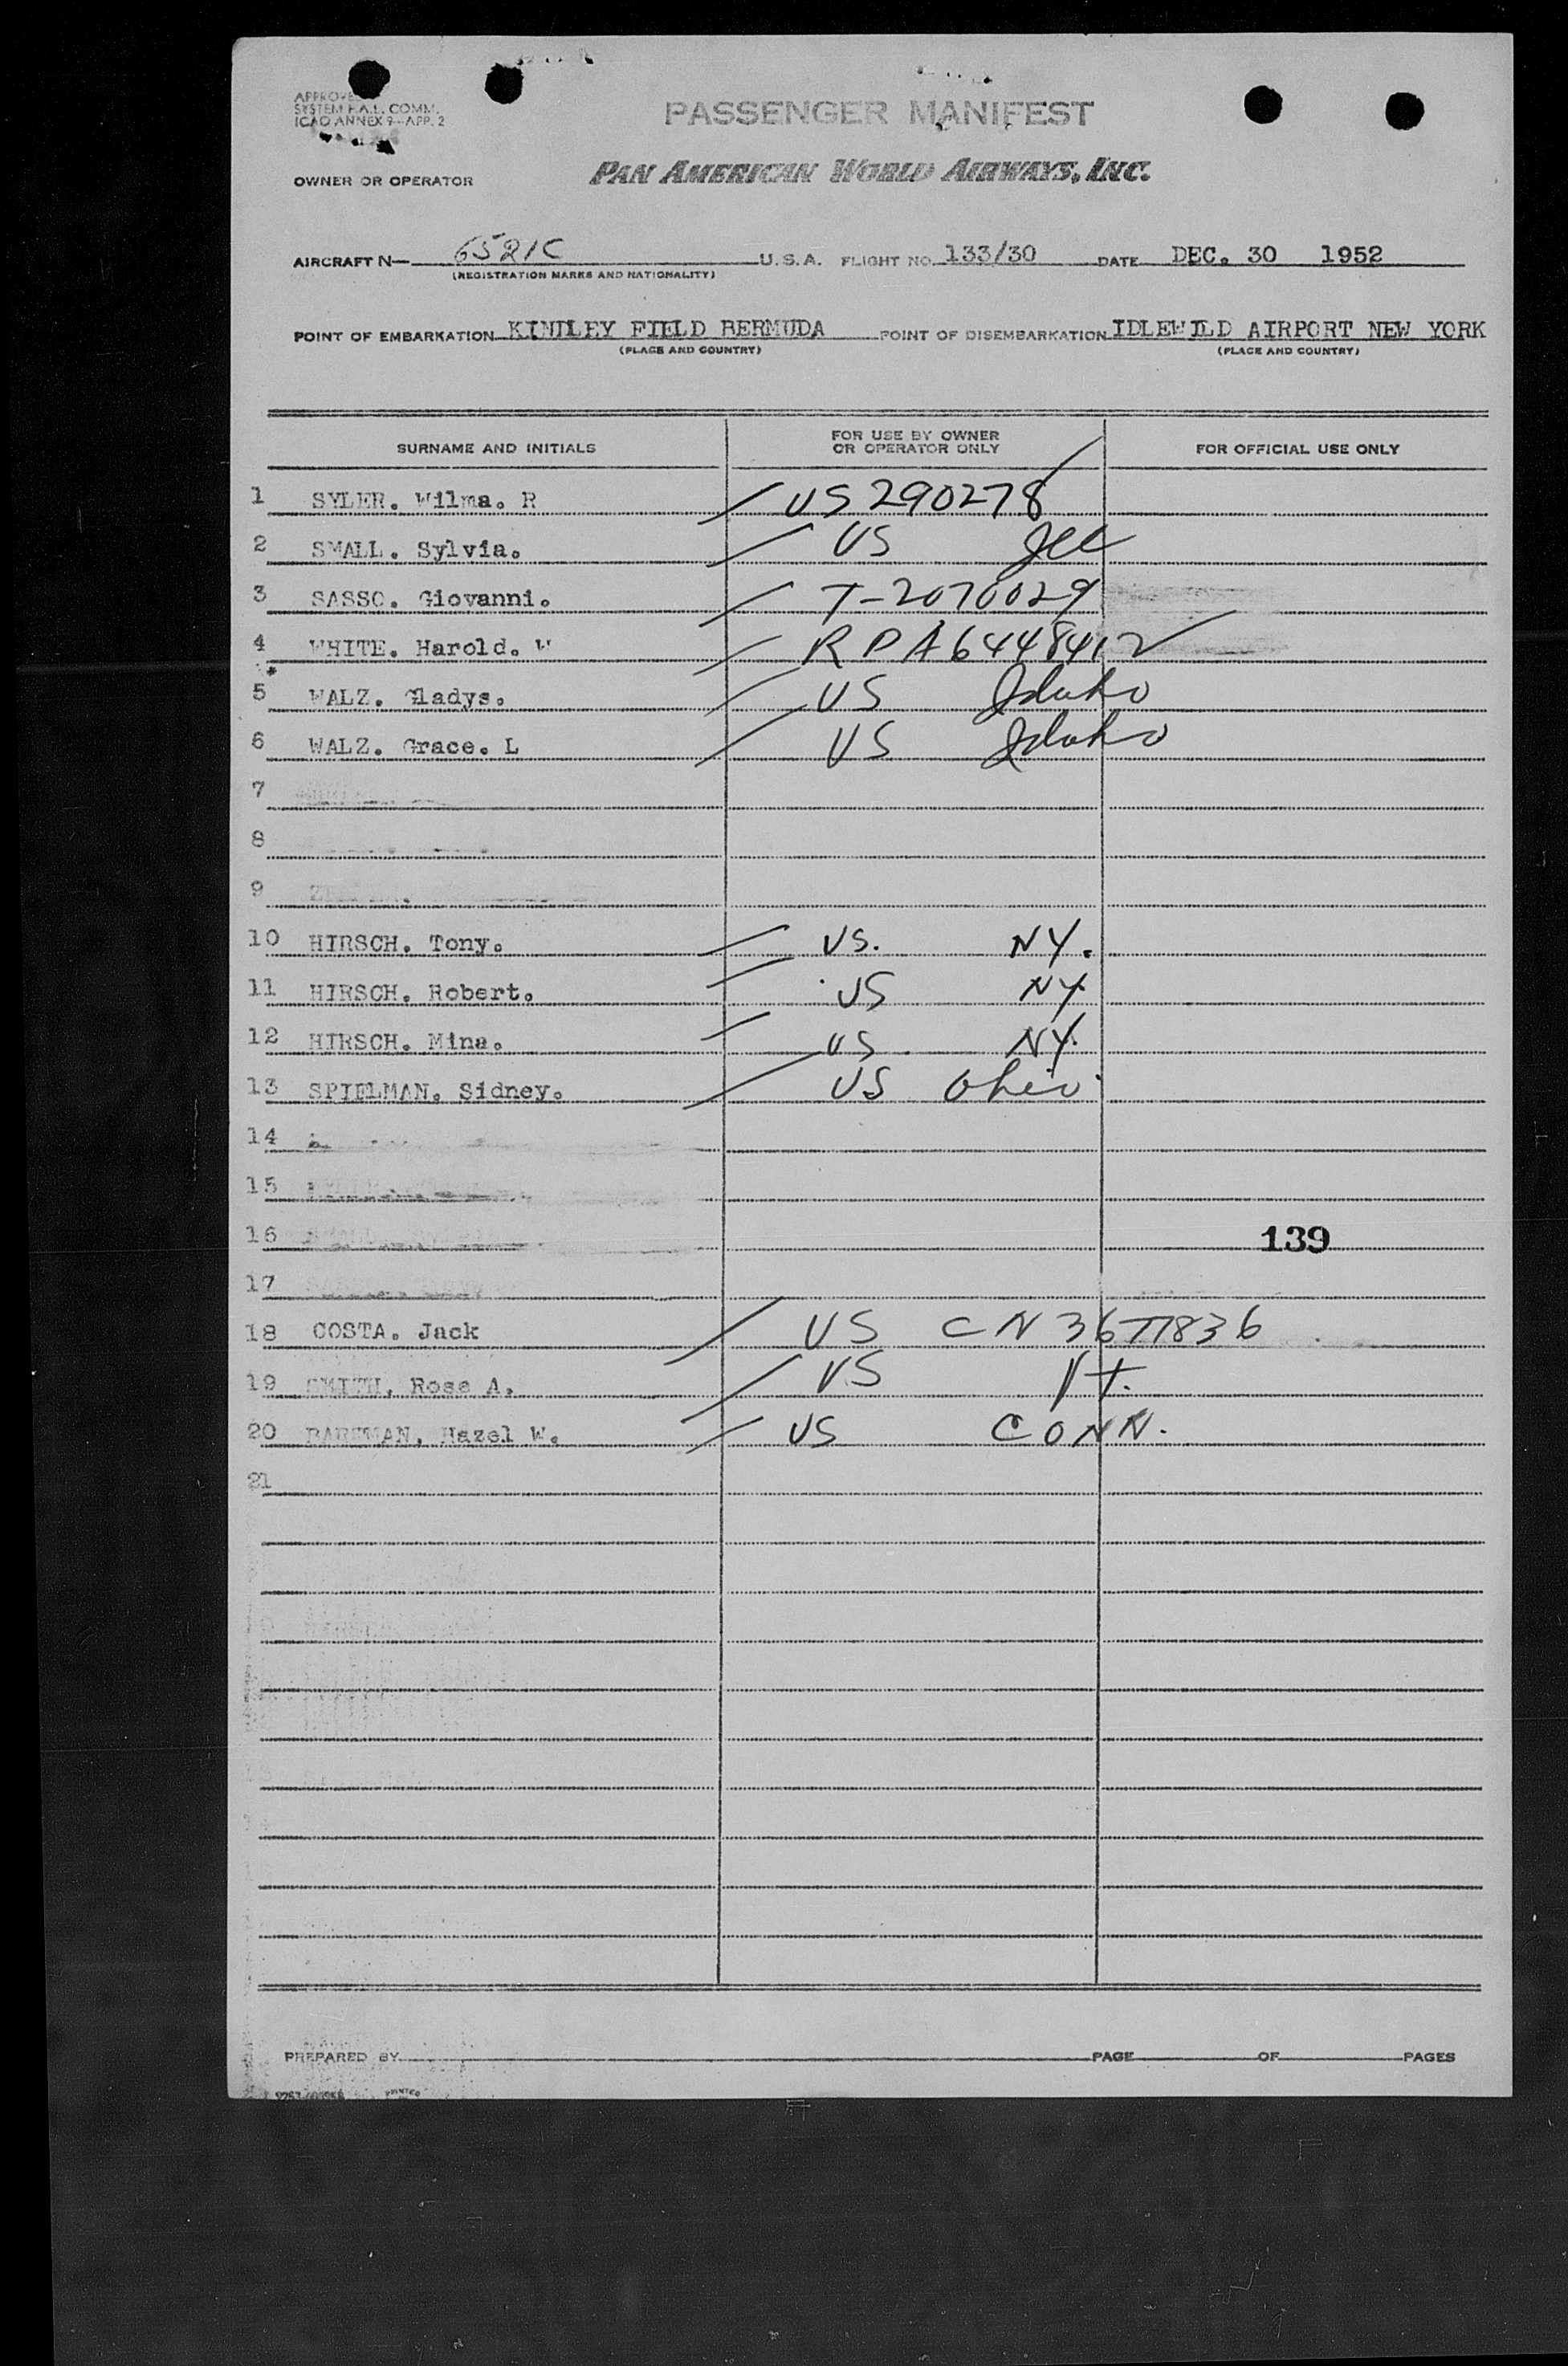 APPROVED
SYSTEM F.A.L. COMM.
ICAO ANNEX 9—APP. 2
PASSENGER MANIFEST
OWNER OR OPERATOR PAN AMERICAN WORLD AIRWAYS, INC.
AIRCRAFT N— 6521C U.S.A. FLIGHT NO. 133/30 DATE DEC. 30 1952
(REGISTRATION MARKS AND NATIONALITY)
POINT OF EMBARKATION KINDLEY FIELD BERMUDA POINT OF DISEMBARKATION IDLEWILD AIRPORT NEW YORK
(PLACE AND COUNTRY) (PLACE AND COUNTRY)
SURNAME AND INITIALS FOR USE BY OWNER OR OPERATOR ONLY FOR OFFICIAL USE ONLY
1 SYLER. Wilma. R US 290278
2 SMALL. Sylvia. US
3 SASSO. Giovanni. T-2070029
4 WHITE. Harold. W R P A6448412
5 WALZ. Gladys. US Idaho
6 WALZ. Grace. L US Idaho
7
8
9
10 HIRSCH. Tony. US. NY.
11 HIRSCH. Robert. US NY
12 HIRSCH. Mina. US NY.
13 SPIELMAN. Sidney. US Ohio
14
15
16 139
17
18 COSTA. Jack US CN 3677836
19 SMITH, Rose A. US
20 Hazel W. US CONN.
21
PREPARED BY PAGE OF PAGES
PRINTED